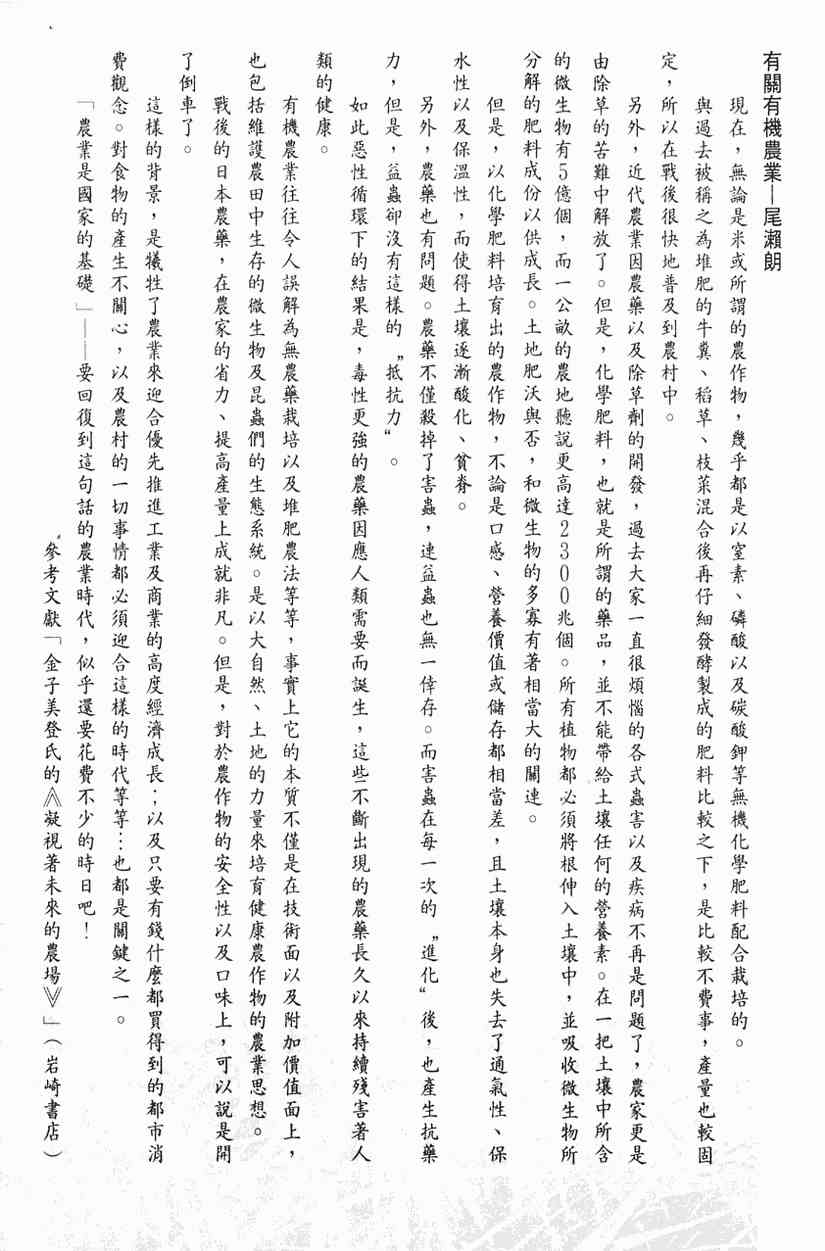 有關有機農業─尾瀨朗
現在，無論是米或所謂的農作物，幾乎都是以窒素、磷酸以及碳酸鉀等無機化學肥料配合栽培的。
與過去被稱之為堆肥的牛糞、稻草、枝葉混合後再仔細發酵製成的肥料比較之下，是比較不費事，產量也較固
定，所以在戰後很快地普及到農村中。
另外，近代農業因農藥以及除草劑的開發，過去大家一直很煩惱的各式蟲害以及疾病不再是問題了，農家更是
由除草的苦難中解放了。但是，化學肥料，也就是所謂的藥品，並不能帶給土壤任何的營養素。在一把土壤中所含
的微生物有5億個，而一公畝的農地聽說更高達2300兆個。所有植物都必須將根伸入土壤中，並吸收微生物所
分解的肥料成份以供成長。土地肥沃與否，和微生物的多寡有著相當大的關連。
但是，以化學肥料培育出的農作物，不論是口感、營養價值或儲存都相當差，且土壤本身也失去了通氣性、保
水性以及保溫性，而使得土壤逐漸酸化、貧脊。
另外，農藥也有問題。農藥不僅殺掉了害蟲，連益蟲也無一倖存。而害蟲在每一次的〝進化〞後，也產生抗藥
力，但是，益蟲卻沒有這樣的〝抵抗力〞。
如此惡性循環下的結果是，毒性更強的農藥因應人類需要而誕生，這些不斷出現的農藥長久以來持續殘害著人
類的健康。
有機農業往往令人誤解為無農藥栽培以及堆肥農法等等，事實上它的本質不僅是在技術面以及附加價值面上，
也包括維護農田中生存的微生物及昆蟲們的生態系統。是以大自然、土地的力量來培育健康農作物的農業思想。
戰後的日本農藥，在農家的省力、提高產量上成就非凡。但是，對於農作物的安全性以及口味上，可以說是開
了倒車了。
這樣的背景，是犧牲了農業來迎合優先推進工業及商業的高度經濟成長；以及只要有錢什麼都買得到的都市消
費觀念。對食物的產生不關心，以及農村的一切事情都必須迎合這樣的時代等等…也都是關鍵之一。
「農業是國家的基礎」——要回復到這句話的農業時代，似乎還要花費不少的時日吧！
參考文獻「金子美登氏的《凝視著未來的農場》」（岩崎書店）